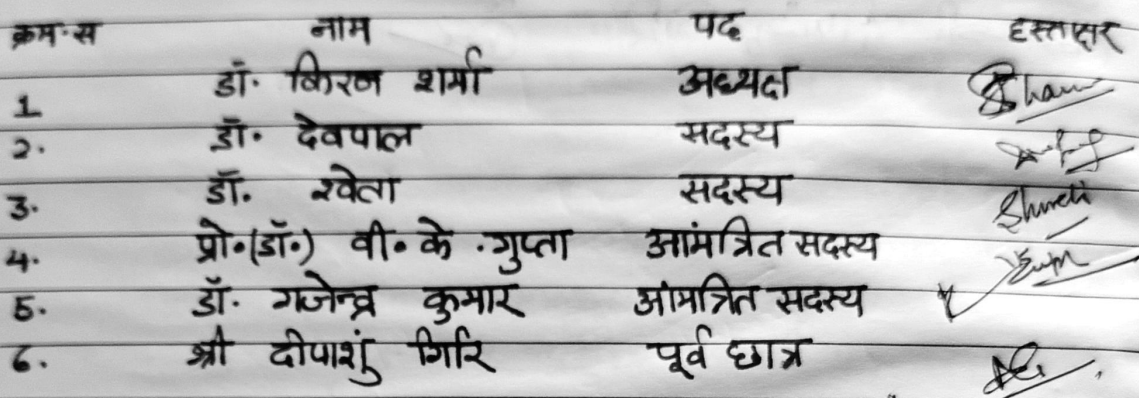 क्रम·स नाम पद हस्ताक्षर
1 डॉ· किरण शर्मा अध्यक्ष
2· डॉ· देवपाल सदस्य
3· डॉ· श्वेता सदस्य Shweta
4· प्रो·(डॉ·) वी· के ·गुप्ता आमंत्रित सदस्य
5· डॉ· गजेन्द्र कुमार आमंत्रित सदस्य
6· श्री दीपाशुं गिरि पूर्व छात्र